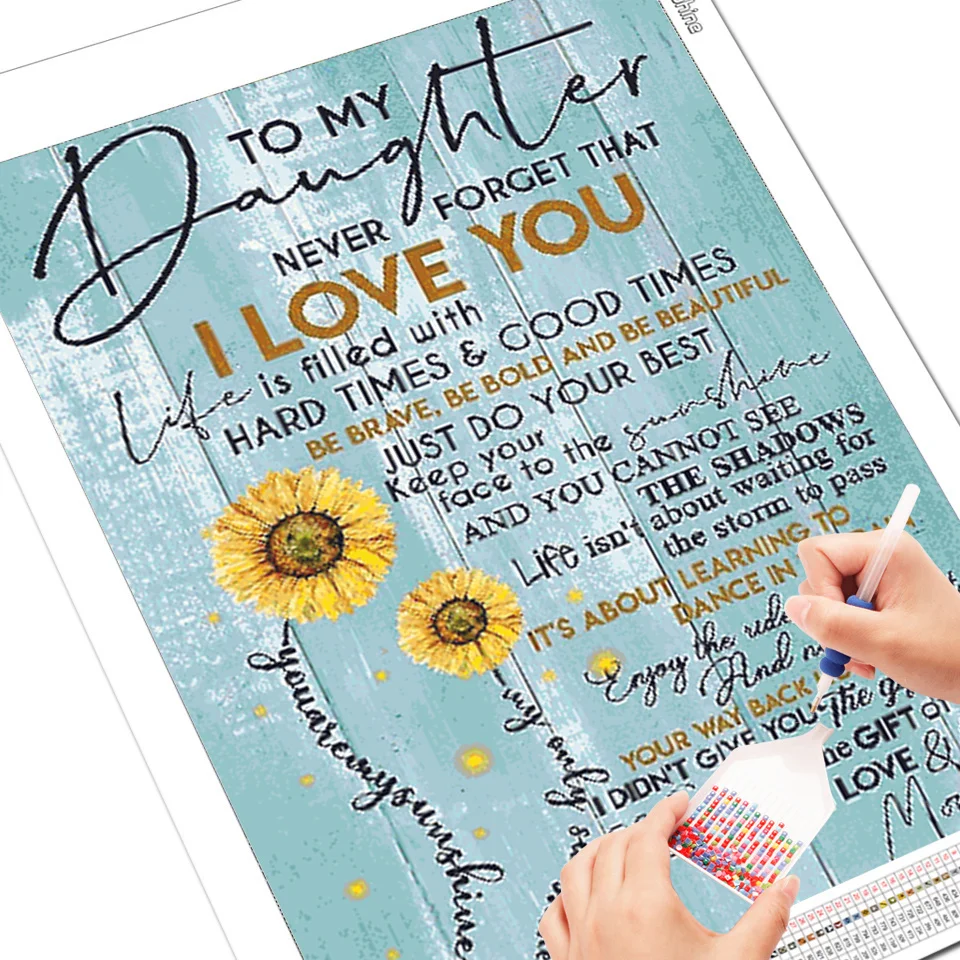 shine
TO MY
Daughter
NEVER FORGET THAT
I LOVE YOU
Life is filled with
HARD TIMES & GOOD TIMES
BE BRAVE, BE BOLD AND BE BEAUTIFUL
JUST DO YOUR BEST
Keep your
face to the sunshine
AND YOU CANNOT SEE
THE SHADOWS
Life isn't about waiting for
the storm to pass
IT'S ABOUT LEARNING TO
DANCE IN
Enjoy the ride
And
YOUR WAY BACK
I DIDN'T GIVE YOU The
the GIFT OF
LOVE &
you are my sunshine
my only